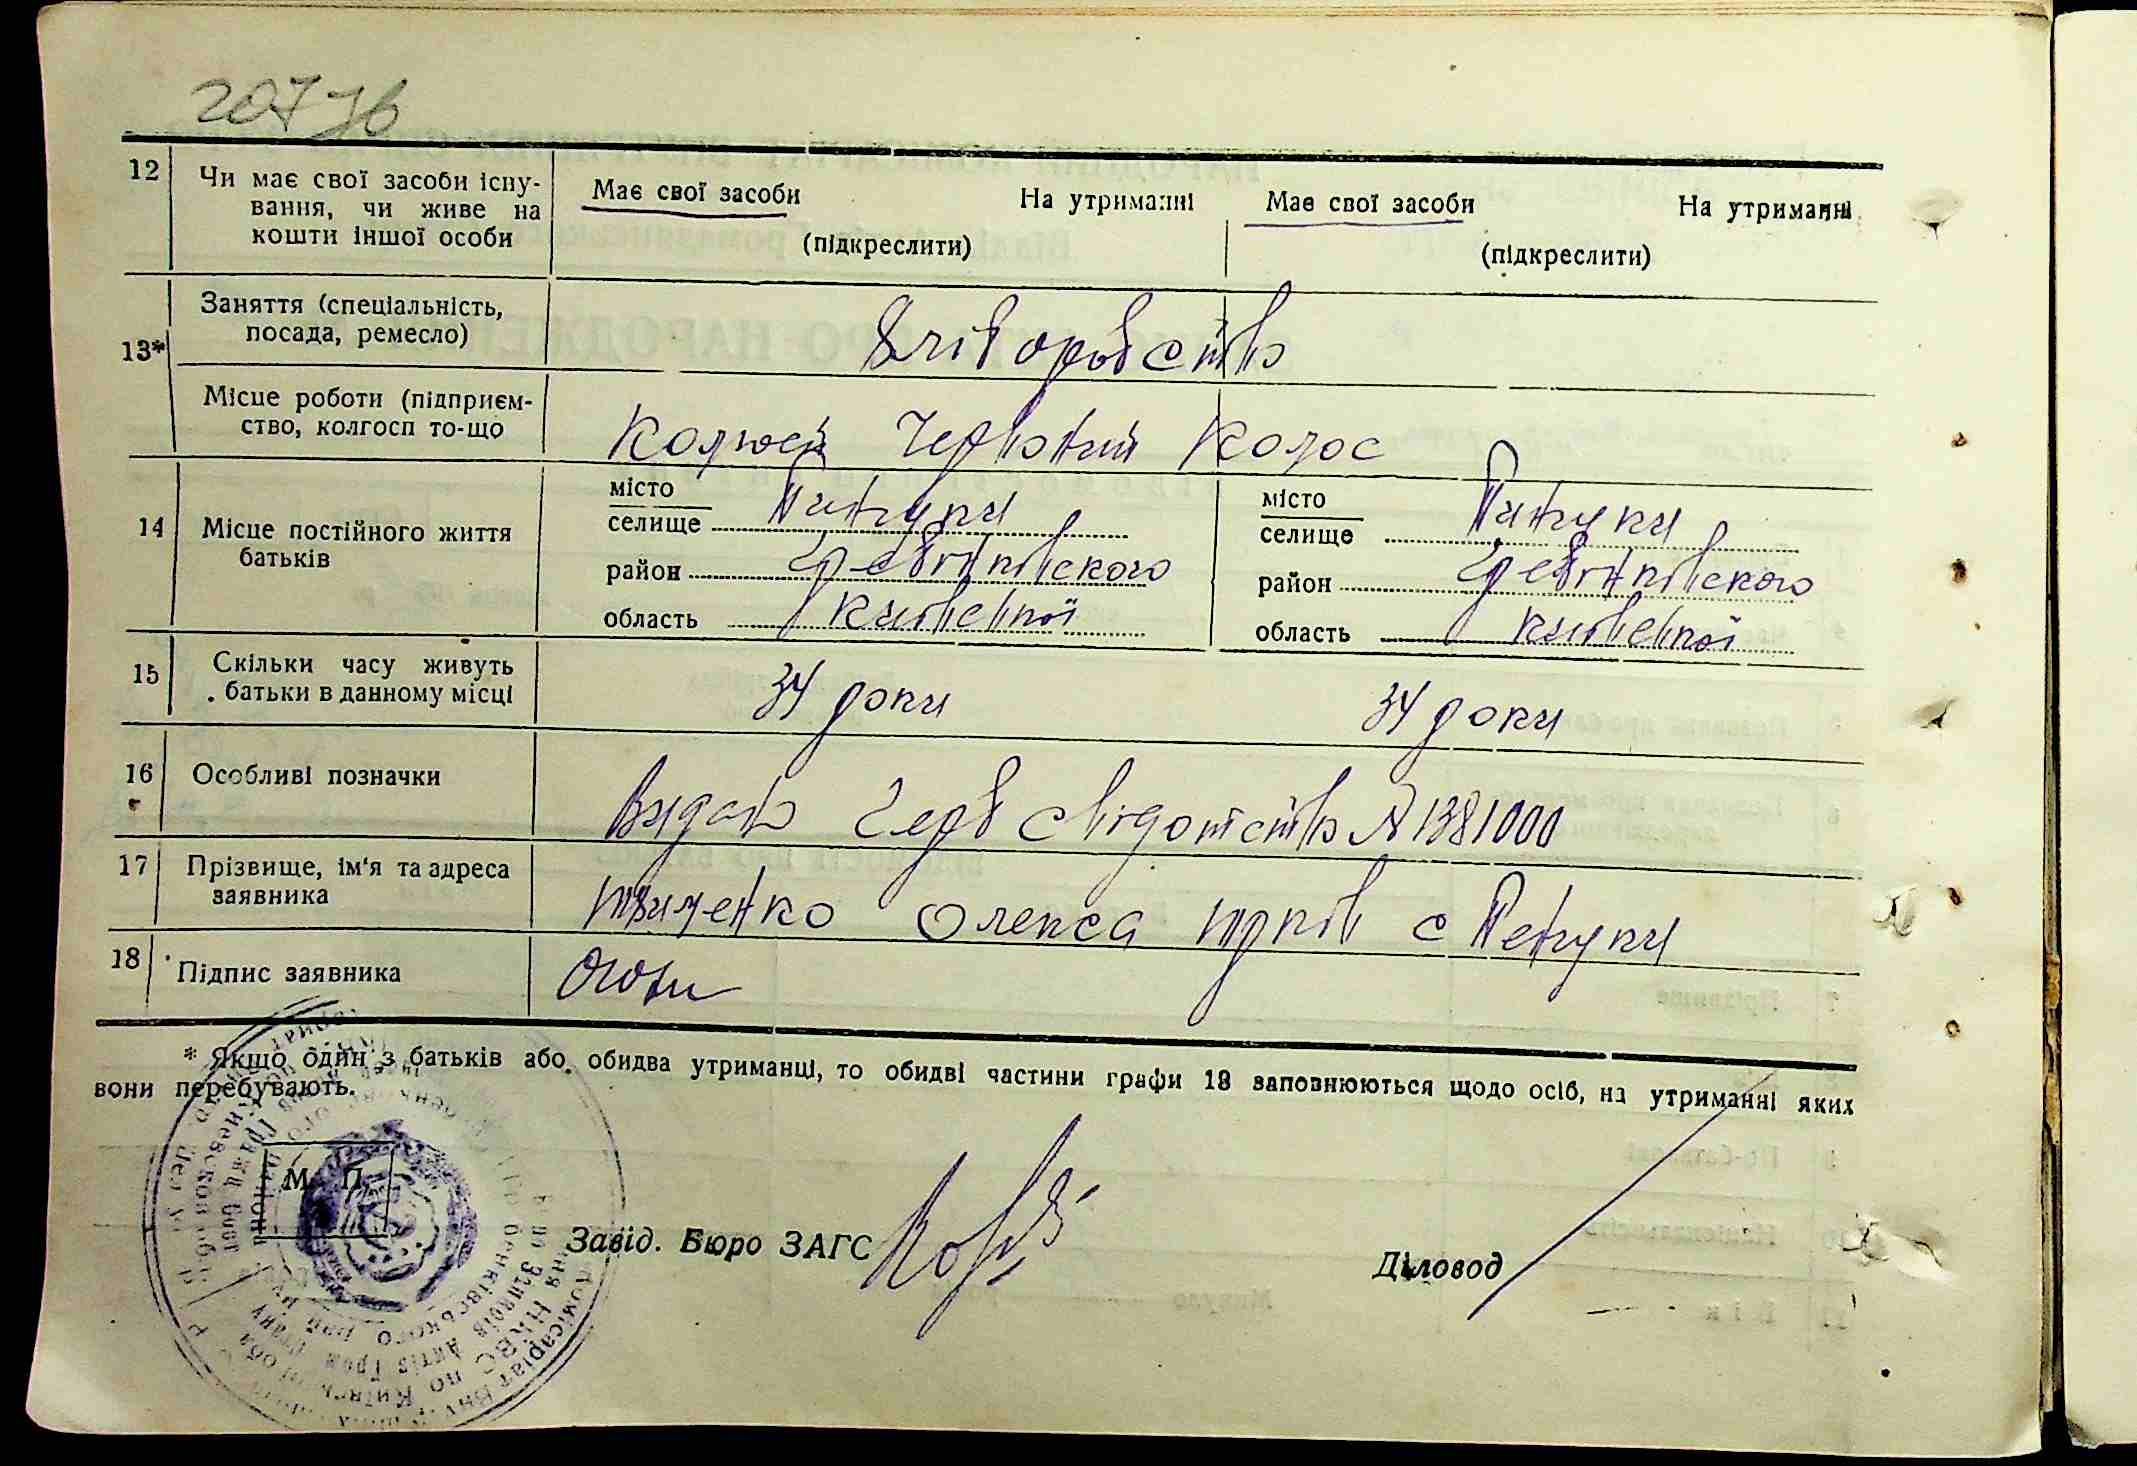 207 зв
12 Чи має свої засоби існу- Має свої засоби На утриманні Має свої засоби На утриманні
вання, чи живе на
кошти іншої особи (підкреслити) (підкреслити)
Заняття (спеціальність,
13* посада, ремесло) Хліборобство
Місце роботи (підприєм-
ство, колгосп то-що Колгосп Червоний Колос
14 Місце постійного життя
батьків
місто
селище Пинчуки
район Гребінківского
область Київської
місто
селище Пинчуки
район Гребінківского
область Київської
15 Скільки часу живуть
батьки в данному місці 34 роки 34 роки
16 Особливі позначки Видано Герб свідотство № 1381000
17 Прізвище, ім'я та адреса
заявника Олекса с Пенчуки
18 Підпис заявника
* Якщо один з батьків або обидва утриманці, то обидві частини графи 13 заповнюються щодо осіб, на утриманні яких
вони перебувають.
М. П.
Завід. Бюро ЗАГС Діловод